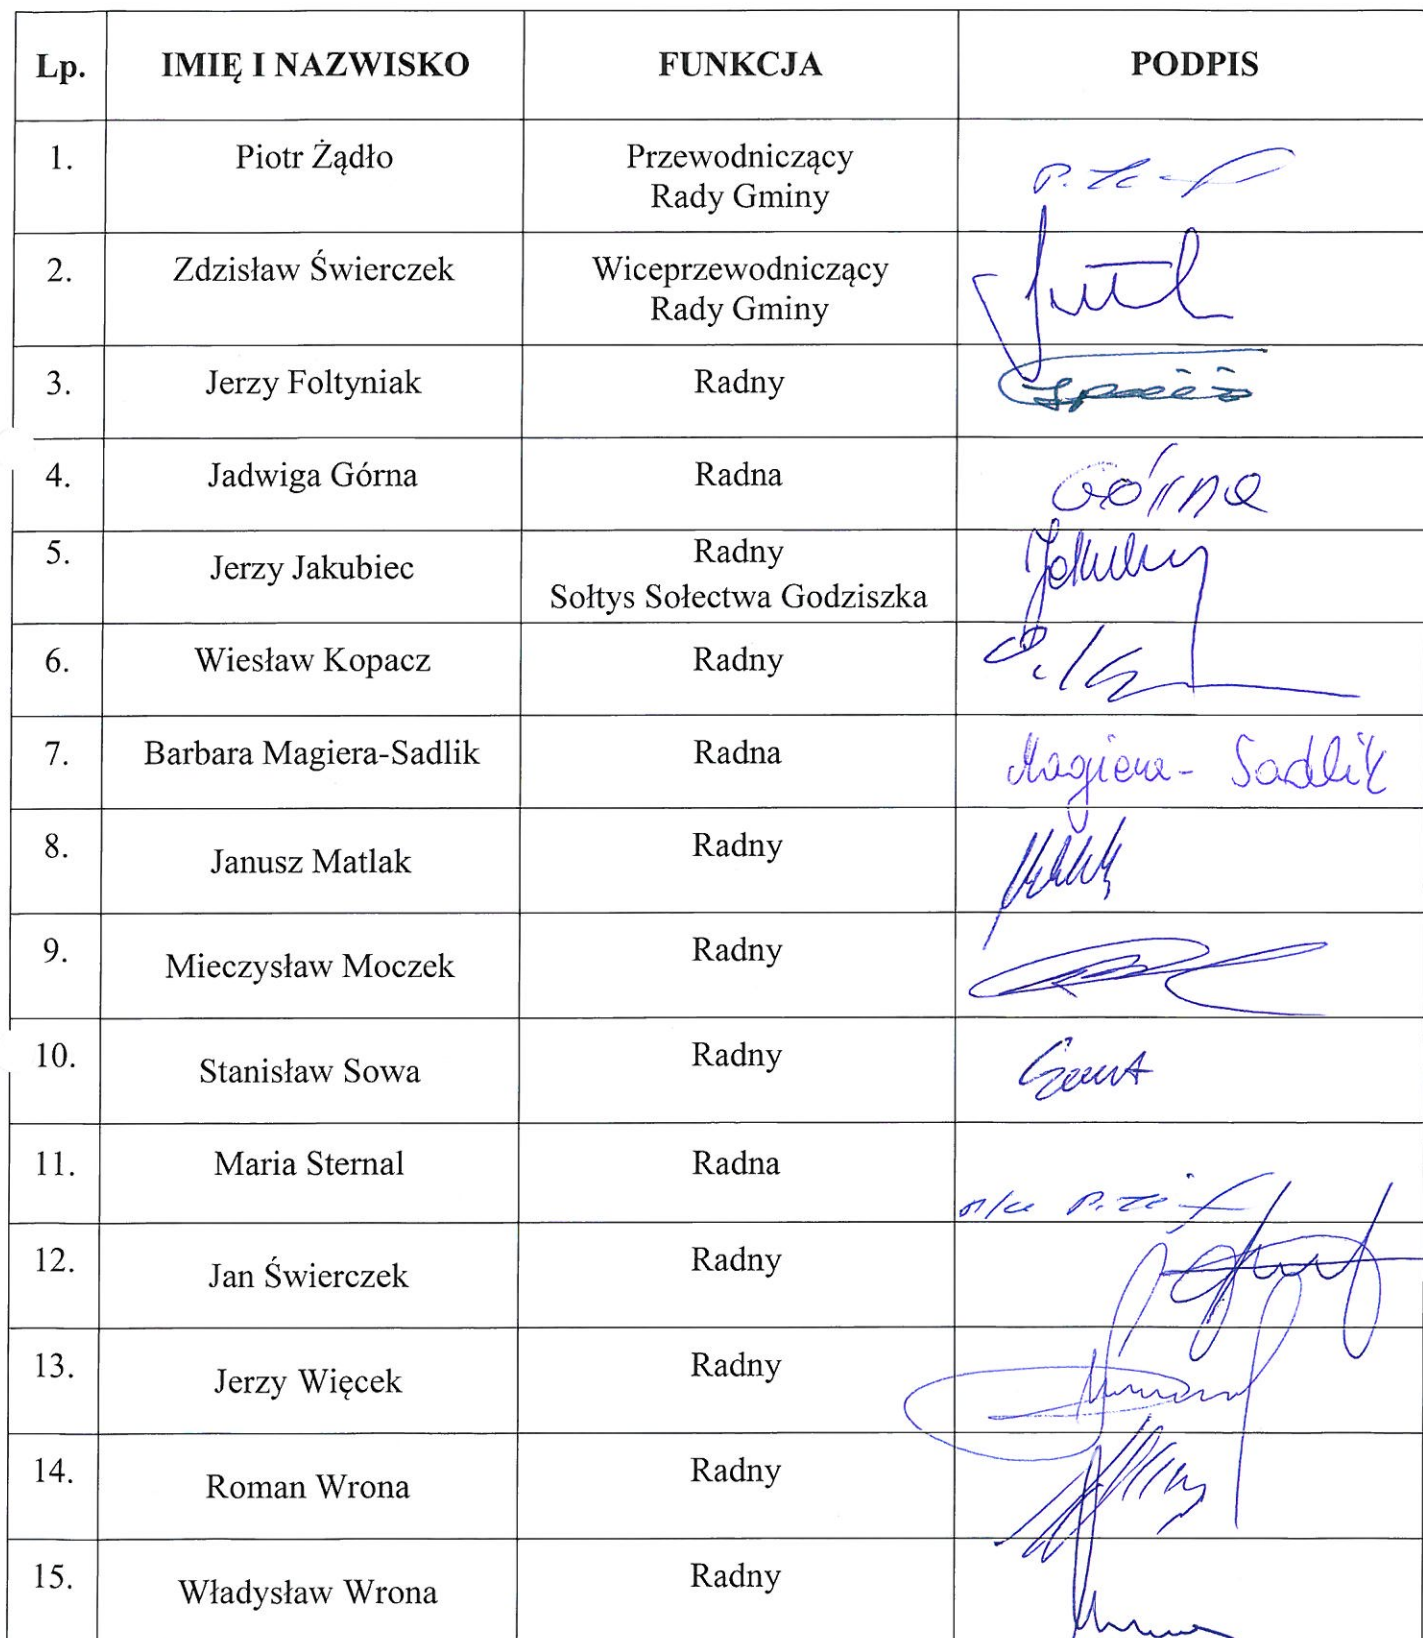 Lp. IMIĘ I NAZWISKO FUNKCJA PODPIS
1. Piotr Żądło Przewodniczący
Rady Gminy
2. Zdzisław Świerczek Wiceprzewodniczący
Rady Gminy
3. Jerzy Foltyniak Radny
4. Jadwiga Górna Radna Górna
5. Jerzy Jakubiec Radny
Sołtys Sołectwa Godziszka
6. Wiesław Kopacz Radny
7. Barbara Magiera-Sadlik Radna Magiera-Sadlik
8. Janusz Matlak Radny
9. Mieczysław Moczek Radny
10. Stanisław Sowa Radny
11. Maria Sternal Radna
12. Jan Świerczek Radny
13. Jerzy Więcek Radny
14. Roman Wrona Radny
15. Władysław Wrona Radny